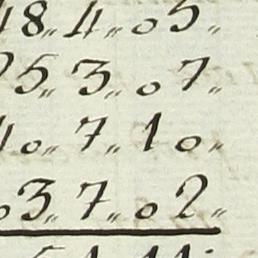 48〃4〃05〃
25〃3〃07〃
40〃7〃10〃
03〃7〃02〃